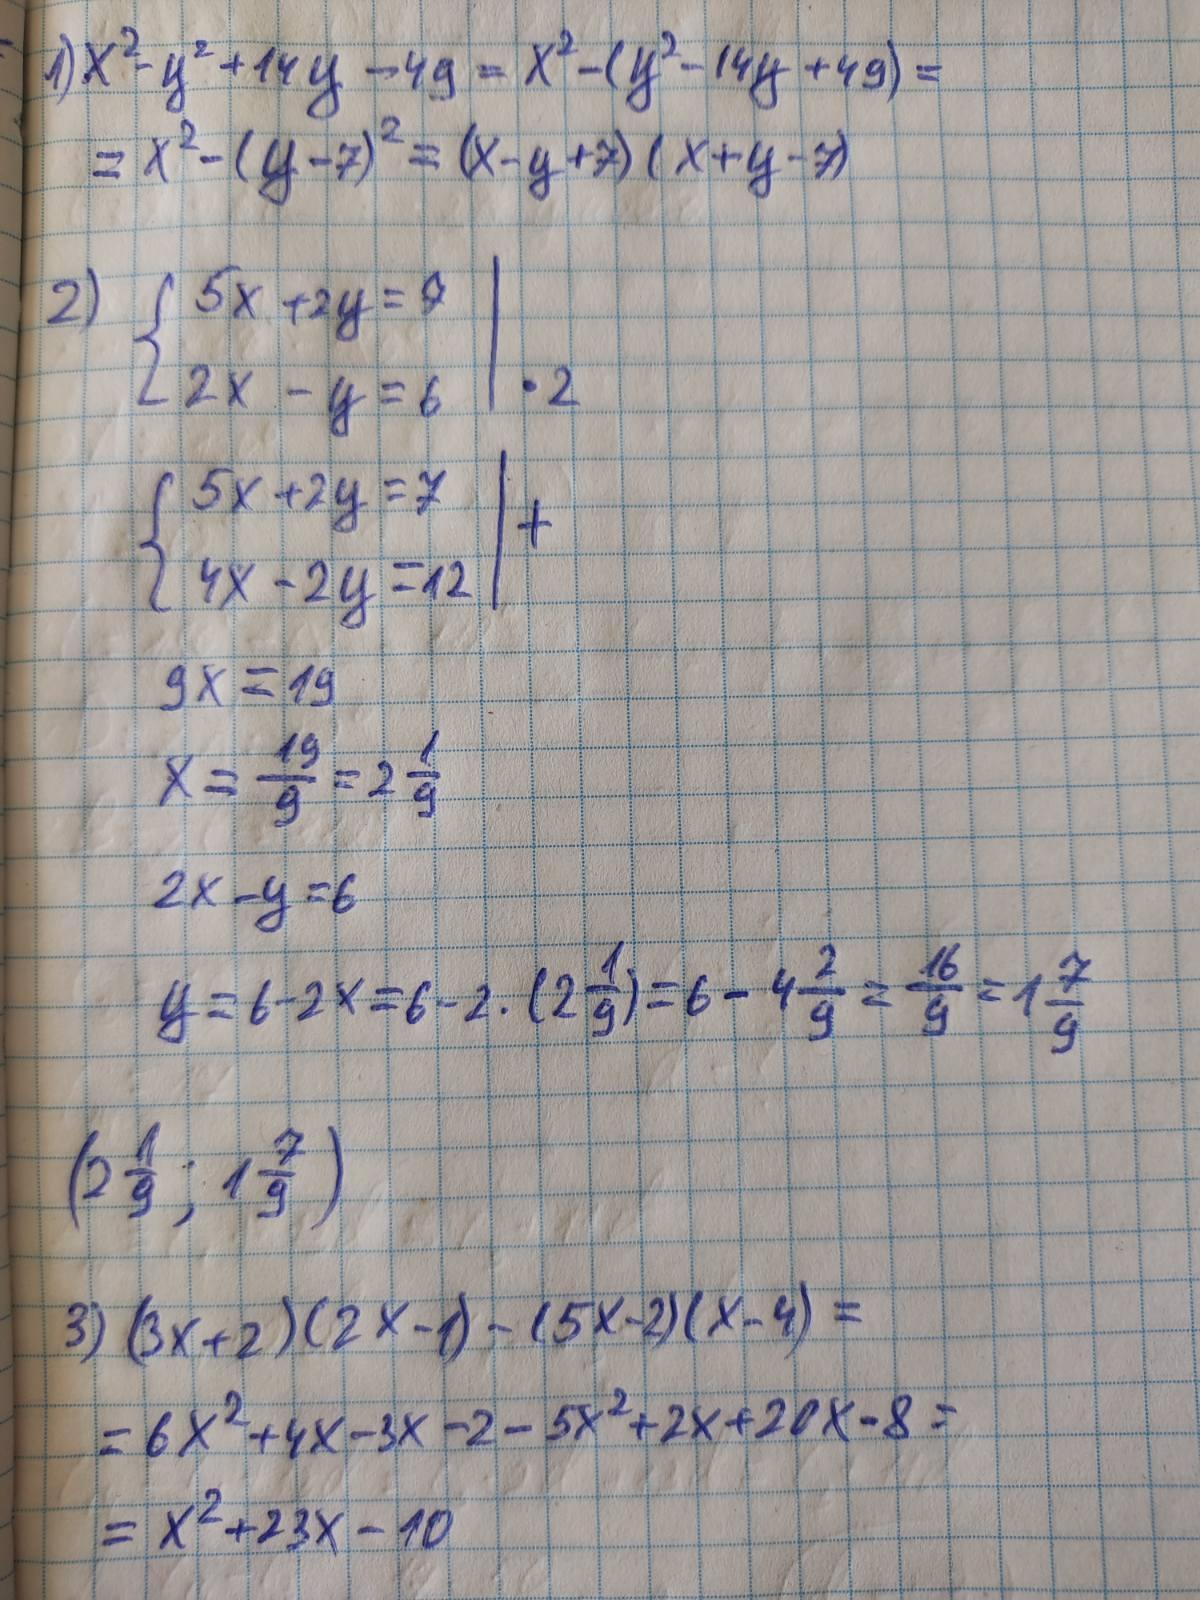 1) x² - y² + 14y - 49 = x² - (y² - 14y + 49) =
= x² - (y - 7)² = (x - y + 7)(x + y - 7)
2) { 5x + 2y = 7 |
2x - y = 6 | · 2
{ 5x + 2y = 7 | +
4x - 2y = 12 |
9x = 19
x = 19/9 = 2 1/9
2x - y = 6
y = 6 - 2x = 6 - 2 · (2 1/9) = 6 - 4 2/9 = 16/9 = 1 7/9
(2 1/9 ; 1 7/9)
3) (3x + 2)(2x - 1) - (5x - 2)(x - 4) =
= 6x² + 4x - 3x - 2 - 5x² + 2x + 20x - 8 =
= x² + 23x - 10